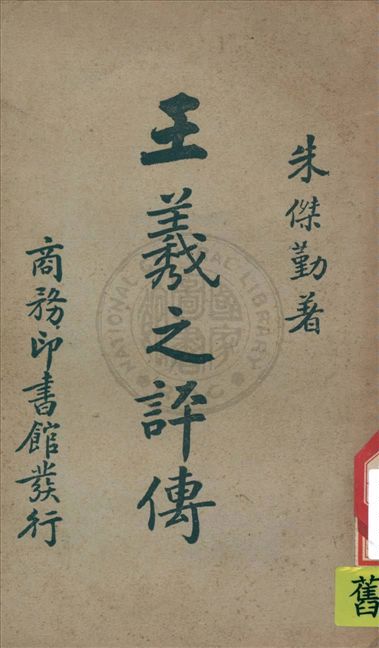 朱傑勤著
王羲之評傳
商務印書館發行
舊
NATIONAL CENTRAL LIBRARY